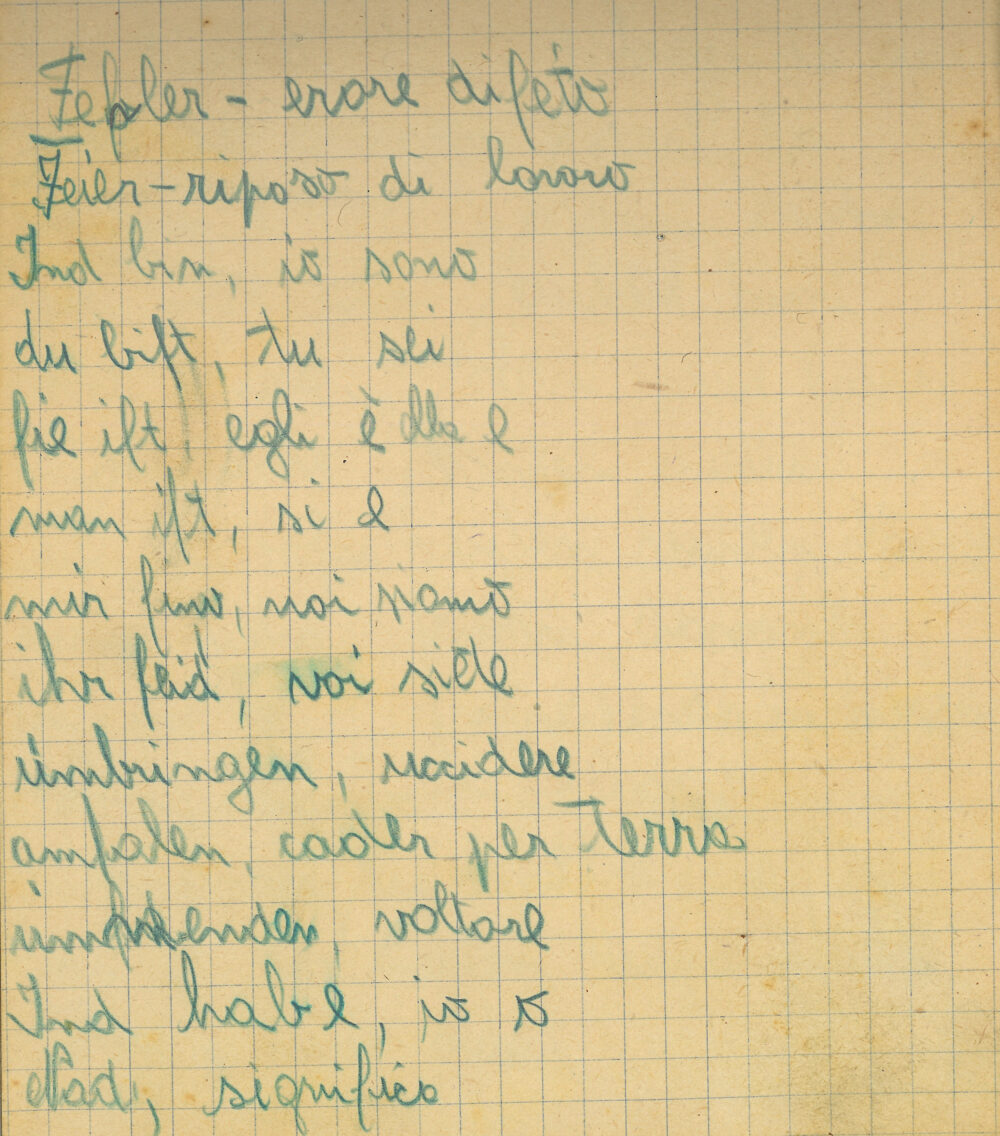 Fepler - erore difeto
Feier - riposo di lavoro
Ind bin, io sono
du bift, tu sei
fie ift, egli è ella e
man ift, si e
mir find, noi siamo
ihr feid, voi siete
ümbringen, uccidere
amfalen, cader per terra
voltare
Ind habe, io o
significa